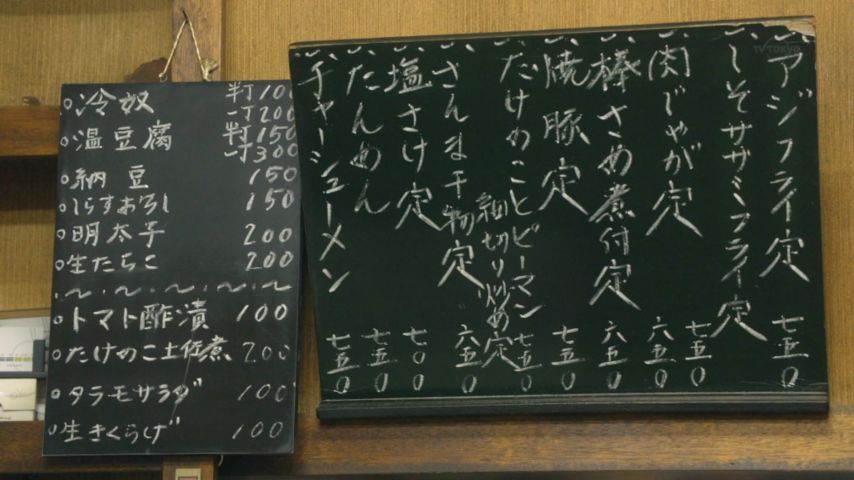 ○冷奴 半丁100
一丁200
○温豆腐 半丁150
一丁300
○納豆 150
○しらすおろし 150
○明太子 200
○生たらこ 200
○トマト酢漬 100
○たけのこ土佐煮 200
○タラモサラダ 100
○生きくらげ 100
アジフライ定 七五〇
しそササミフライ定 七五〇
肉じゃが定 六五〇
棒さめ煮付定 六五〇
焼豚定 七五〇
たけのことピーマン細切り炒め定 七五〇
さんま干物定 六五〇
塩さけ定 七〇〇
たんめん 七五〇
チャーシューメン 七五〇
TV TOKYO